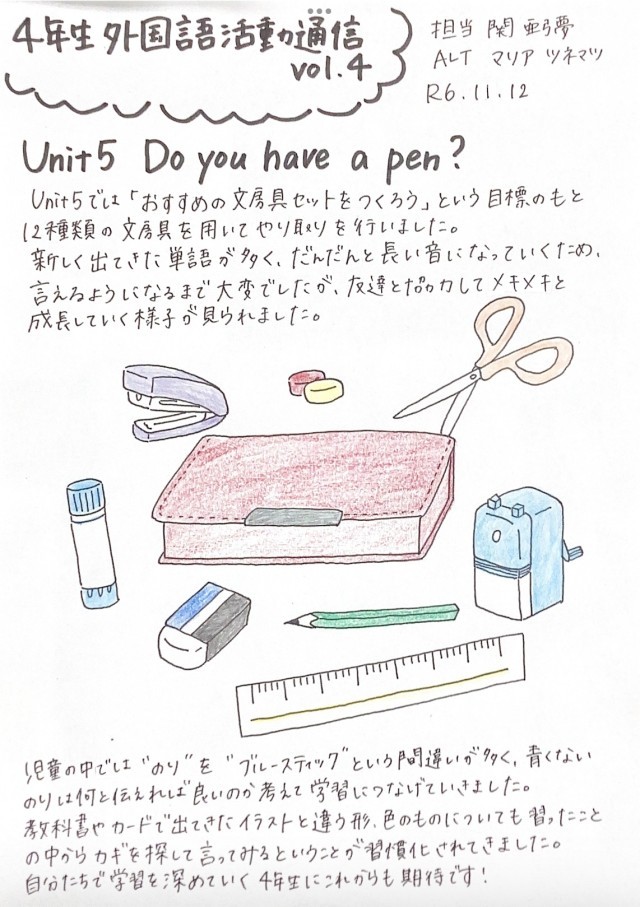 4年生 外国語活動通信
vol.4
担当 関 亜弓夢
ALT マリア ツネマツ
R6.11.12
Unit5 Do you have a pen?
Unit5では「おすすめの文房具セットをつくろう」という目標のもと
12種類の文房具を用いてやり取りを行いました。
新しく出てきた単語が多く、だんだんと長い音になっていくため、
言えるようになるまで大変でしたが、友達と協力してメキメキと
成長していく様子が見られました。
児童の中では“のり”を“ブルースティック”という間違いが多く、青くない
のりは何と伝えれば良いのか考えて学習につなげていきました。
教科書やカードで出てきたイラストと違う形、色のものについても習ったこと
の中からカギを探して言ってみるということが習慣化されてきました。
自分たちで学習を深めていく4年生にこれからも期待です!